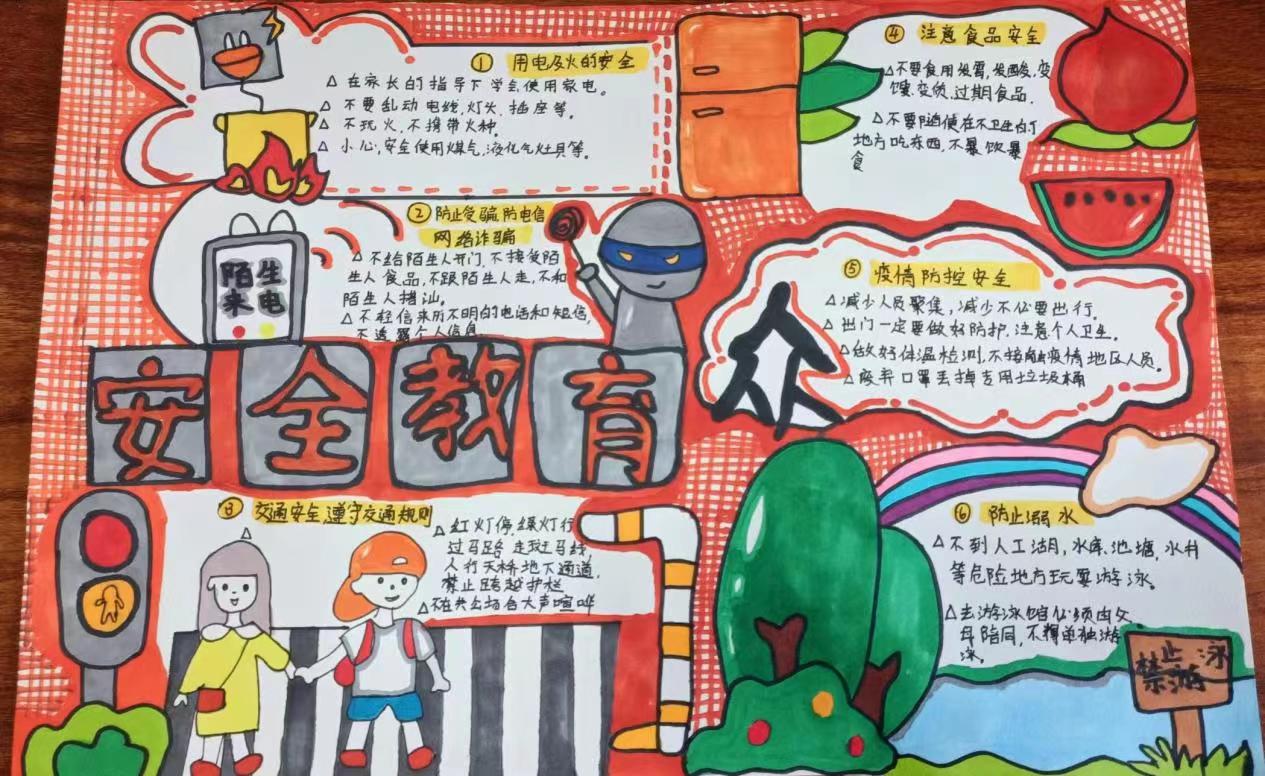 ① 用电及火的安全
△ 在家长的指导下学会使用家电。
△ 不要乱动电线,灯火,插座等。
△ 不玩火,不携带火种。
△ 小心,安全使用煤气,液化气灶具等。
② 防止受骗防电信
网络诈骗
△ 不给陌生人开门,不接受陌
生人食品,不跟陌生人走,不和
陌生人搭讪。
△ 不轻信来历不明的电话和短信,
不透露个人信息
陌生
来电
安全教育
③ 交通安全遵守交通规则
△
△红灯停,绿灯行
过马路 走斑马线
人行天桥地下通道,
禁止跨越护栏
△不在公共场合大声喧哗
④ 注意食品安全
△不要食用发霉,发酸,变
馊,变质,过期食品.
△不要随便在不卫生的
地方吃东西,不暴饮暴
食
⑤ 疫情防控安全
△减少人员聚集,减少不必要出行。
△出门一定要做好防护,注意个人卫生。
△做好体温检测,不接触疫情地区人员。
△废弃口罩丢掉专用垃圾桶
众
⑥ 防止溺水
△ 不到人工湖,水库,池塘,水井
等危险地方玩耍游泳。
△去游泳馆必须由父
母陪同,不得单独游
泳。
禁止游泳